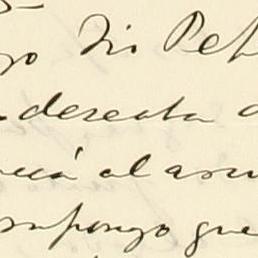 go Tio Pep
deseata d
ciá al asu
supongo que